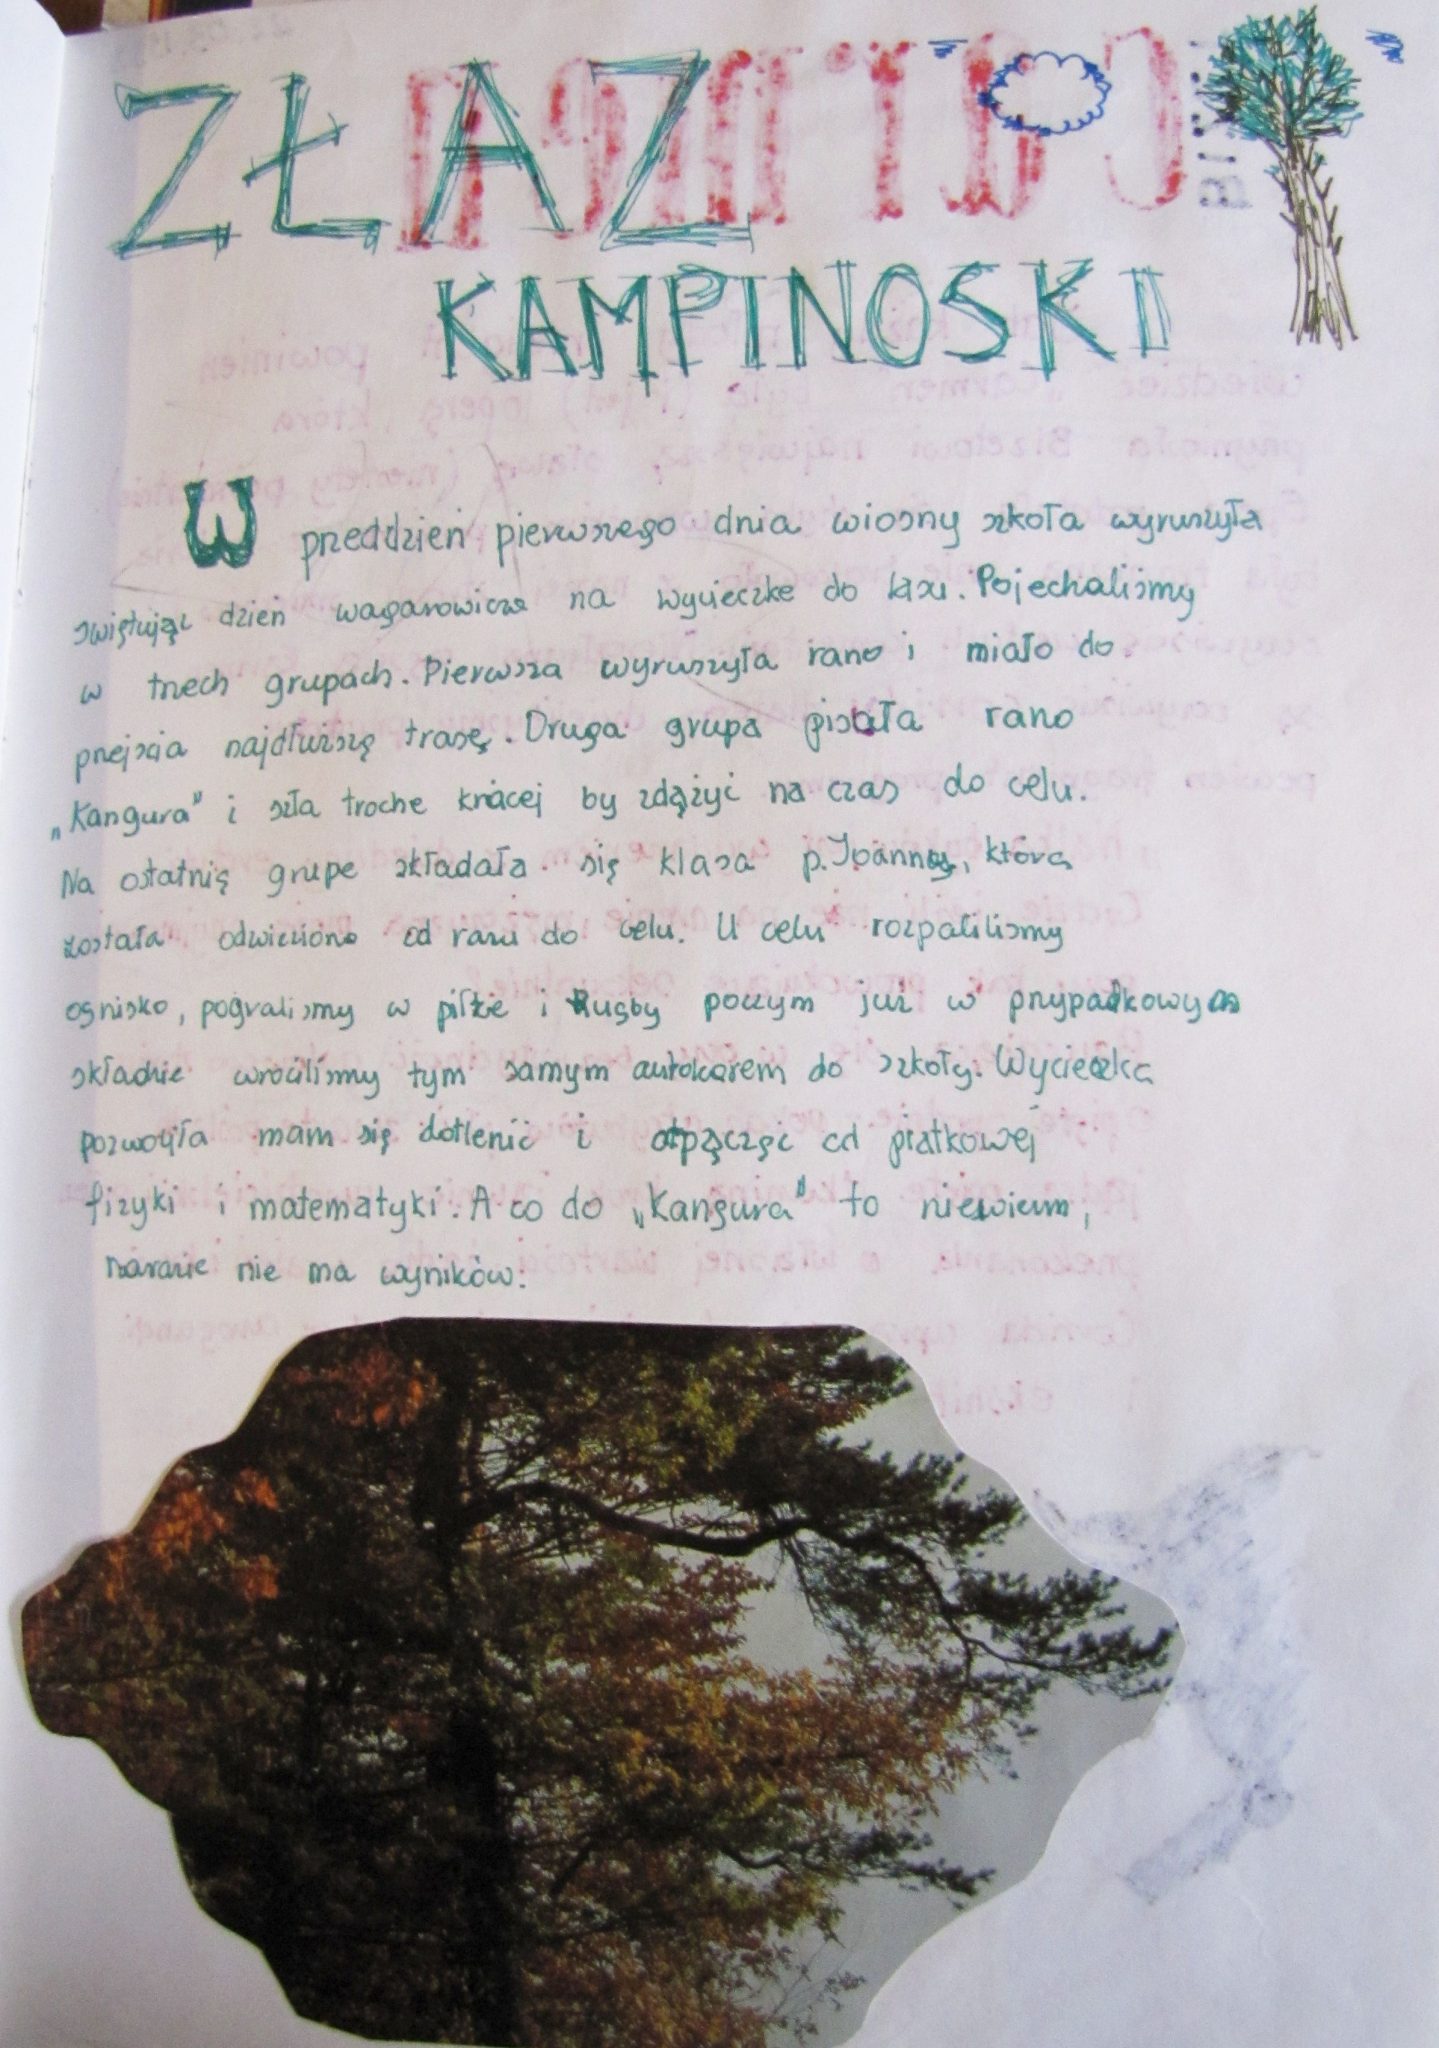 ZŁAZ
KAMPINOSKI
W przeddzień pierwszego dnia wiosny szkoła wyruszyła
świętując dzień wagarowicza na wycieczke do lasu. Pojechaliśmy
w trzech grupach. Pierwsza wyruszyła rano i miało do
przejścia najdłuższą trasę. Druga grupa pisała rano
„Kangura" i szła troche krócej by zdążyć na czas do celu.
Na ostatnią grupe składała się klasa p. Joanny, która
została odwieziona od razu do celu. U celu rozpaliliśmy
ognisko, pograliśmy w piłke i Rugby poczym już w przypadkowym
składzie wróciliśmy tym samym autokarem do szkoły. Wycieczka
pozwoliła nam się dotlenić i odpocząć od piatkowej
fizyki i matematyki. A co do „Kangura" to niewiem,
narazie nie ma wyników.